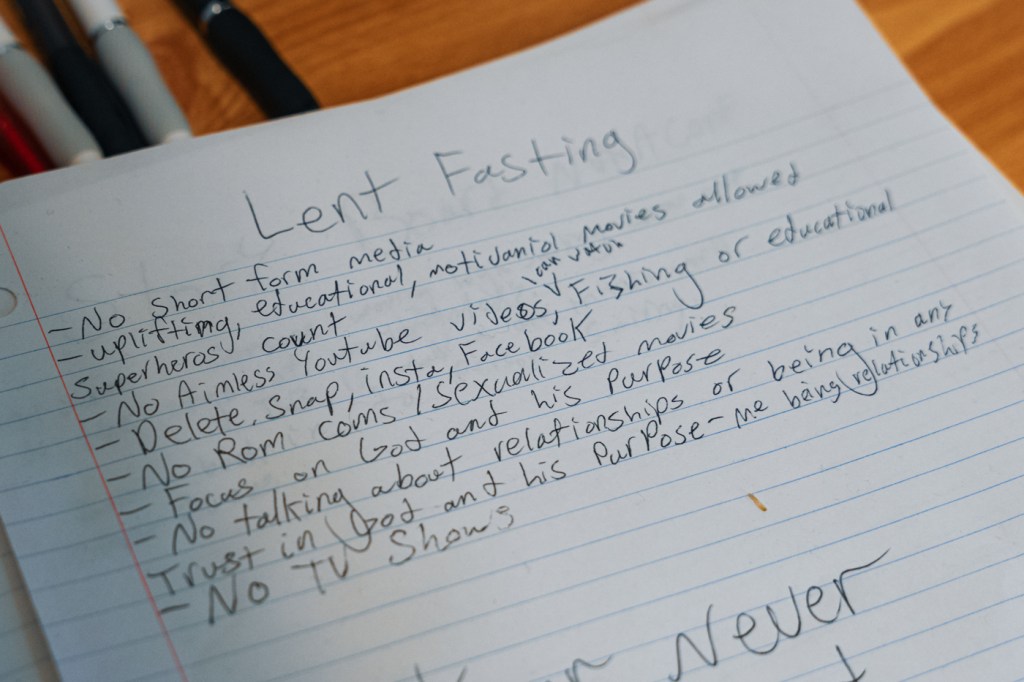 Lent Fasting
- No Short form media
- uplifting, educational, motivaniol movies allowed
Superheros count
- No Aimless Youtube videos, Fishing or educational
can
- Delete. Snap, insta, Facebook
- No Rom coms / Sexualized movies
- Focus on God and his Purpose
- No talking about relationships or being in any relationships
Trust in God and his Purpose - me being
- No TV Shows
Never